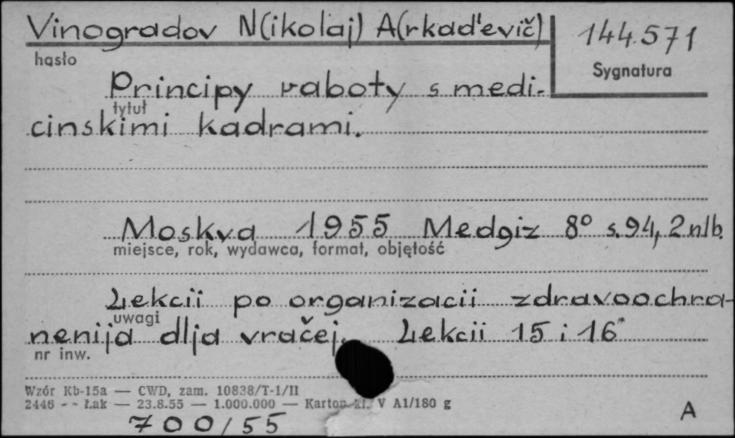 Vinogradov N(ikolaj) A(rkad'evič)
144.571
hasło
Sygnatura
Principy raboty s medi-
tytuł
cinskimi kadrami.
Moskva 1955 Medgiz 8° s.94, 2 nlb.
miejsce, rok, wydawca, format, objętość
Lekcii po organizacii zdravoochra-
uwagi
nenija dlja vračej. Lekcii 15 i 16
nr inw.
Wzór Kb-15a — CWD, zam. 10838/T-1/II
2446 -- Łak — 23.8.55 — 1.000.000 — Karton kl. V A1/180 g
700/55
A